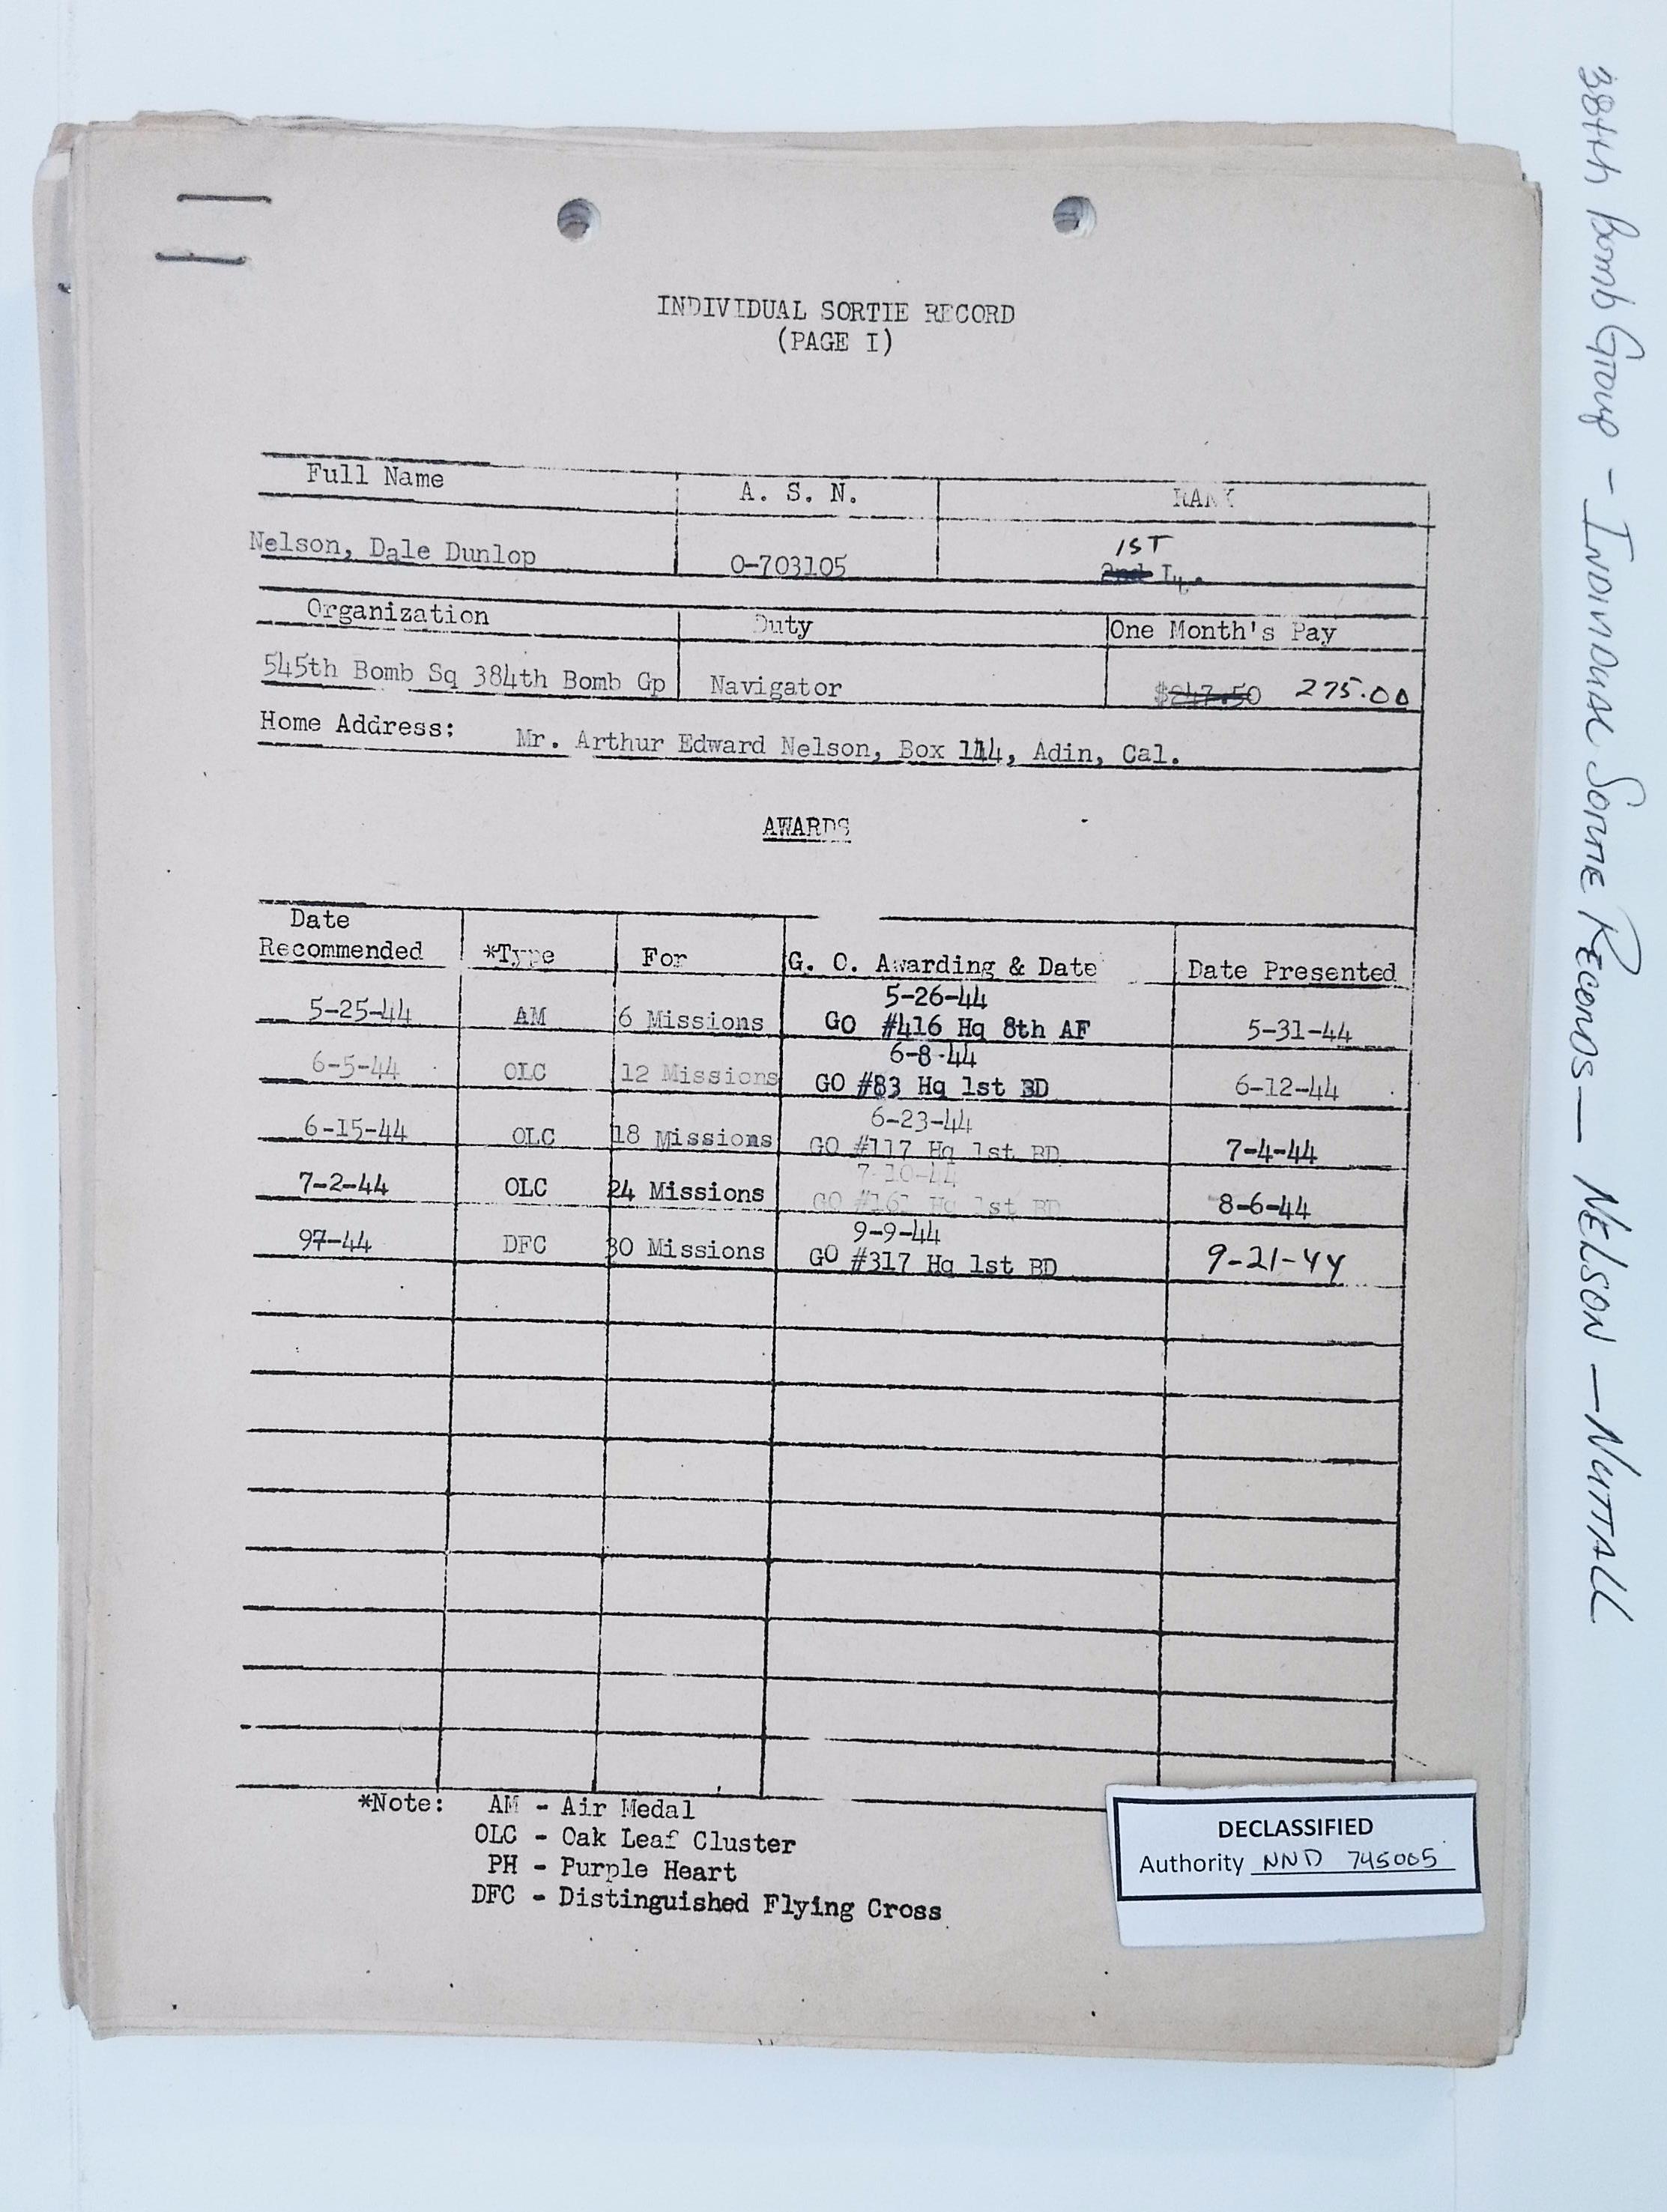 INDIVIDUAL SORTIE RECORD
(PAGE I)
Full Name A. S. N. RANK
Nelson, Dale Dunlop 0-703105 1ST 2nd Lt.
Organization Duty One Month's Pay
545th Bomb Sq 384th Bomb Gp Navigator $247.50 275.00
Home Address: Mr. Arthur Edward Nelson, Box 144, Adin, Cal.
AWARDS
Date
Recommended *Type For G. O. Awarding & Date Date Presented
5-26-44
5-25-44 AM 6 Missions GO #416 Hq 8th AF 5-31-44
6-8-44
6-5-44 OLC 12 Missions GO #83 Hq 1st BD 6-12-44
6-23-44
6-15-44 OLC 18 Missions GO #117 Hq 1st BD 7-4-44
7-10-44
7-2-44 OLC 24 Missions GO #161 Hq 1st BD 8-6-44
9-9-44
97-44 DFC 30 Missions GO #317 Hq 1st BD 9-21-44
*Note: AM - Air Medal
OLC - Oak Leaf Cluster
PH - Purple Heart
DFC - Distinguished Flying Cross
DECLASSIFIED
Authority NND 745005
384th Bomb Group - INDIVIDUAL SORTIE RECORDS - NELSON - NUTTALL